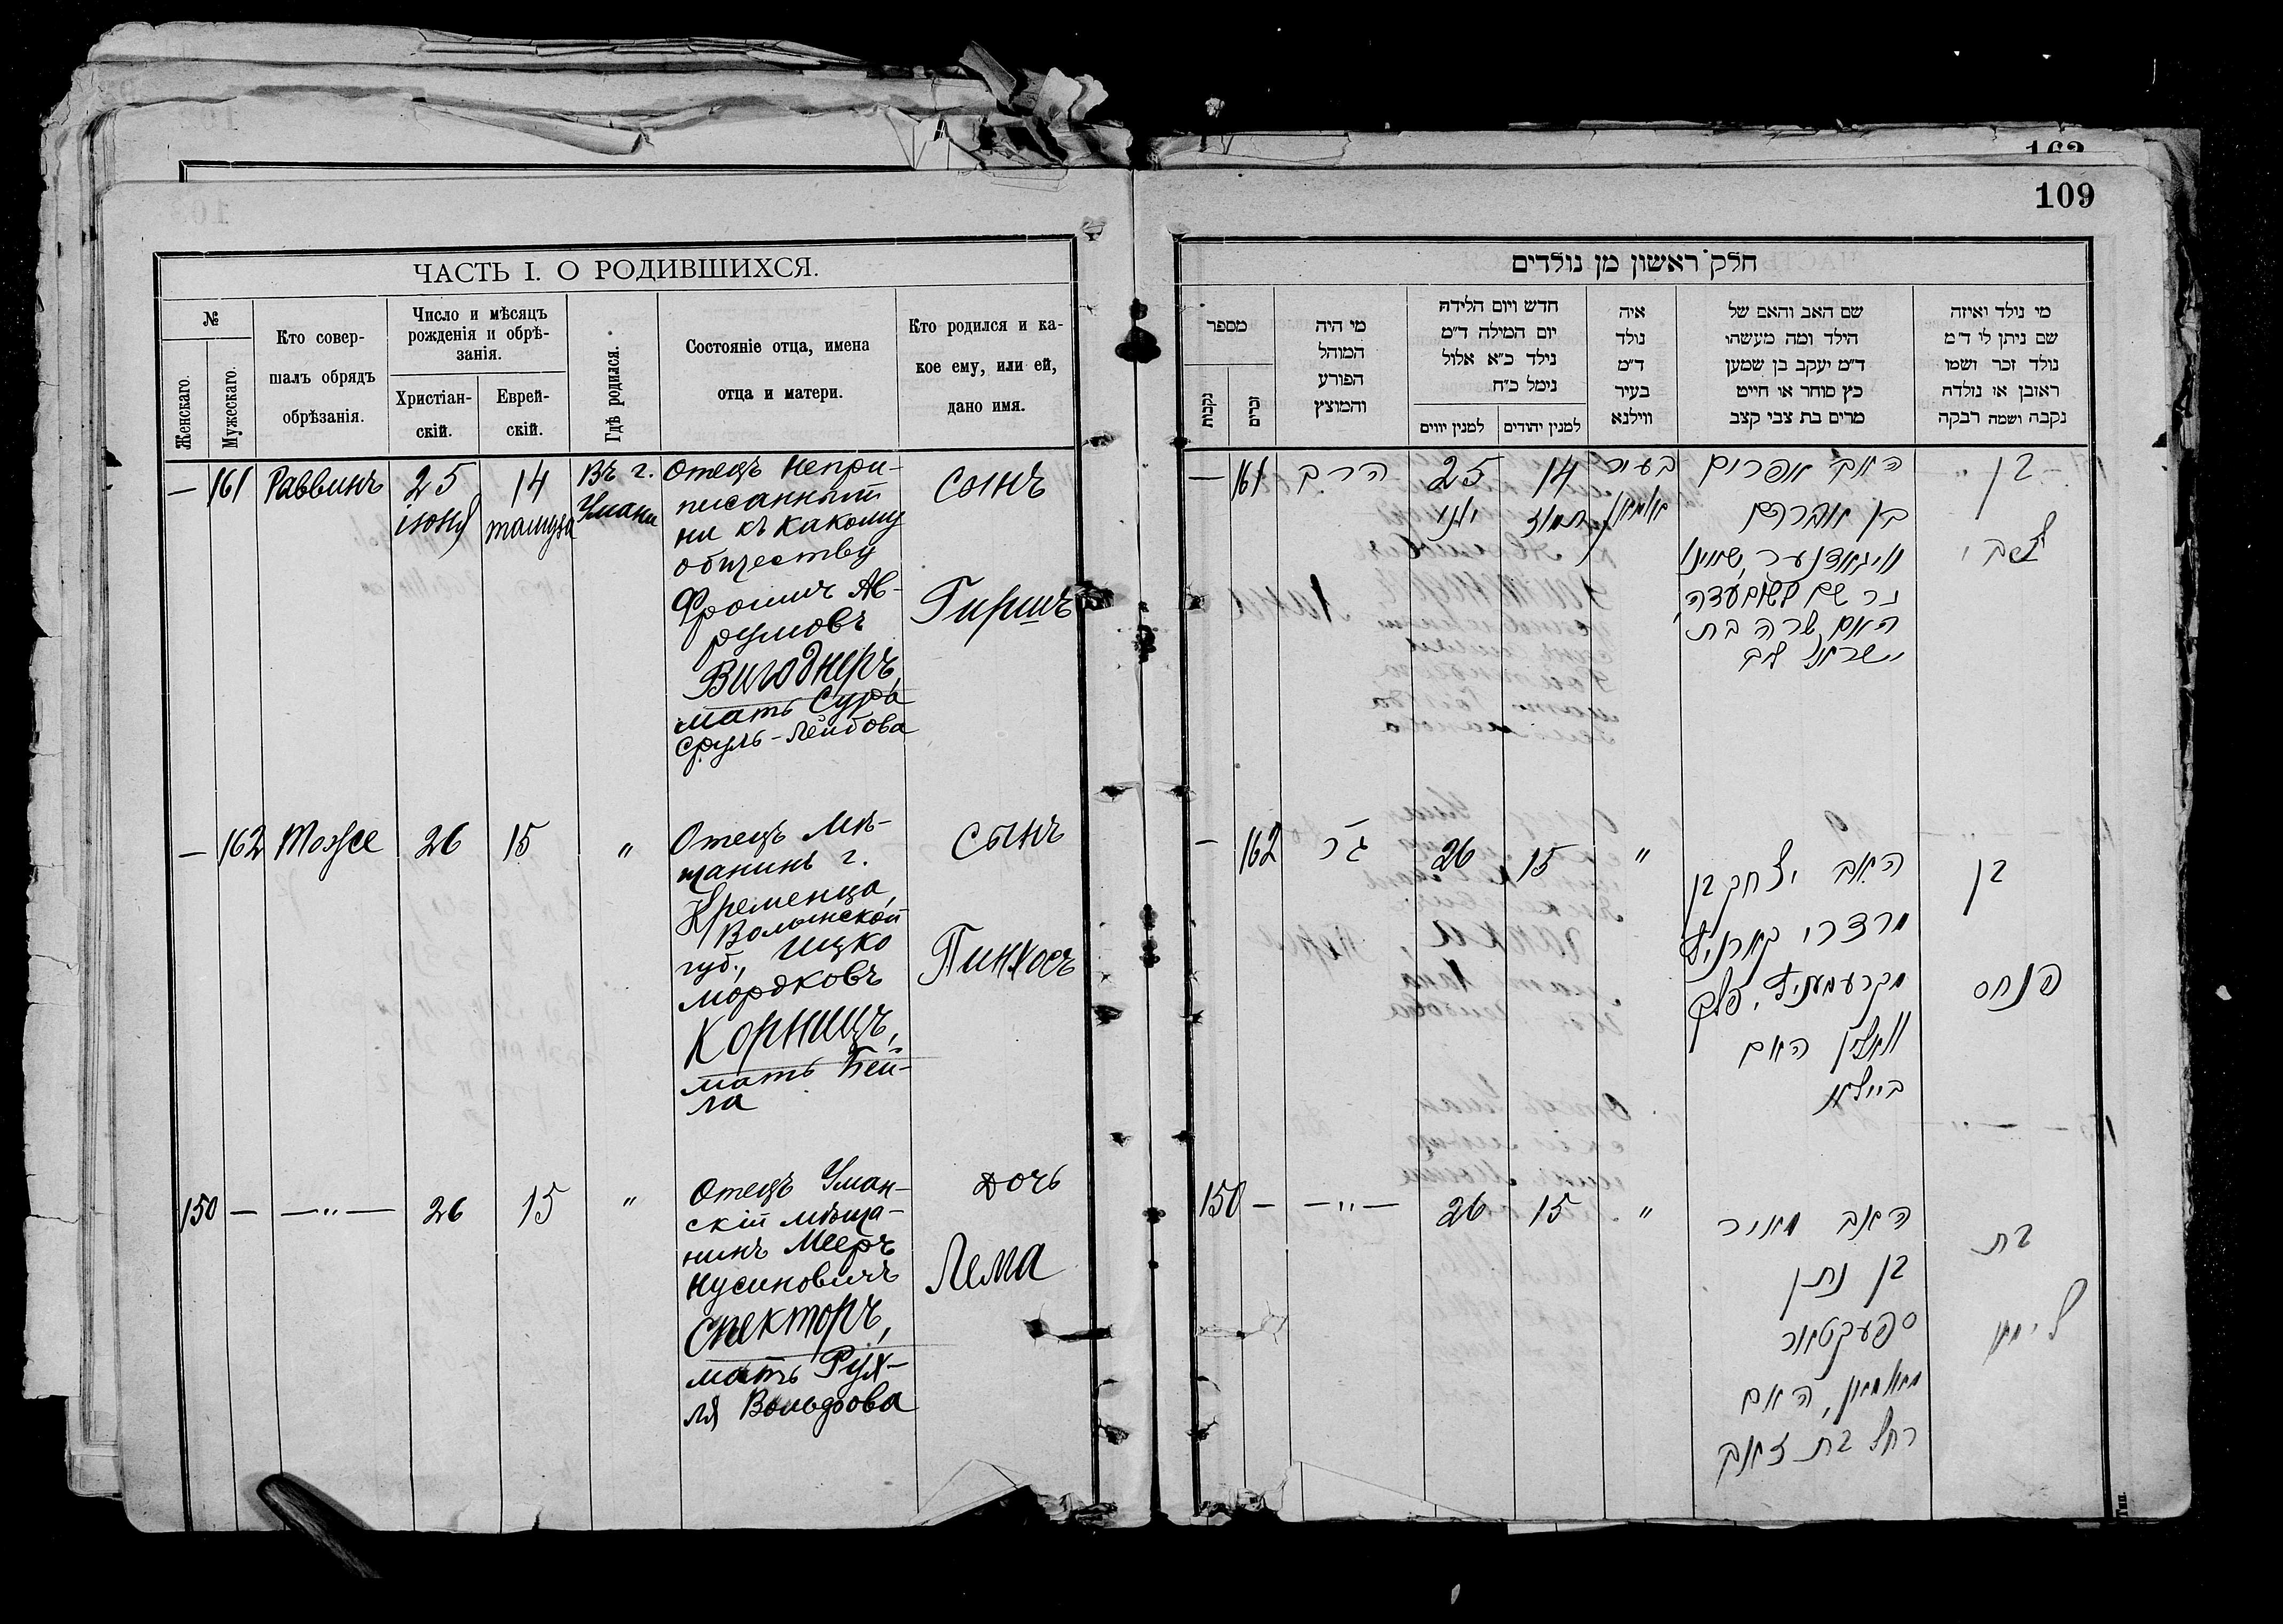 109
ЧАСТЬ I. О РОДИВШИХСЯ.
№
Женскаго.
Мужескаго.
Кто совер-
шалъ обрядъ
обрѣзанія.
Число и мѣсяцъ
рожденія и обрѣ-
занія.
Христіан-
скій.
Еврей-
скій.
Гдѣ родился.
Состояніе отца, имена
отца и матери.
Кто родился и ка-
кое ему, или ей,
дано имя.
— 161 Раввинъ
25
іюня
14
тамуза
Въ г.
Умани
Отецъ непри-
писанный
ни къ какому
обществу
Фроимъ Ав-
румовъ
Вигоднеръ,
мать Сура
Сруль-Лейбова
сынъ
Гиршъ
— 162 Тоже 26 15 "
Отецъ мѣ-
щанинъ г.
Кременца,
Волынской
губ., Ицко
Мордковъ
Корницъ,
мать Бей-
ла
сынъ
Пинхосъ
150 — —"— 26 15 "
Отецъ Уман-
скій мѣща-
нинъ Мееръ
Нусиновичъ
Спекторъ,
мать Рух-
ля Вольфова
дочь
Лема
חלק ראשון מן נולדים
מספר
נקבות
זכרים
מי היה
המוהל
הפורע
והמוצץ
חדש ויום הלידה
יום המילה ד״מ
נילד כ״א אלול
נימל כ״ח
למנין יווים
למנין יהודים
איה
נולד
ד״מ
בעיר
ווילנא
שם האב והאם של
הילד ומה מעשהו
ד״מ יעקב בן שמען
כץ סוחר או חייט
מרים בת צבי קצב
מי נולד ואיזה
שם ניתן לו ד״מ
נולד זכר ושמו
ראובן או נולדה
נקבה ושמה רבקה
— 161 הרב
25
יוני
14
תמוז
בעיר
אומאן
האב אפרים
בן אברהם
וויגאדנער,
האם שרה בת
ישראל ליב
בן
צבי
— 162 26 15 "
האב יצחק בן
מרדכי קארניץ
מקרעמעניץ, פלך
וואלין האם
ביילא
בן
פנחס
150 — —"— 26 15 "
האב מאיר
בן נתן
ספעקטאר
מאומאן, האם
רחל בת זאב
בת
לימא